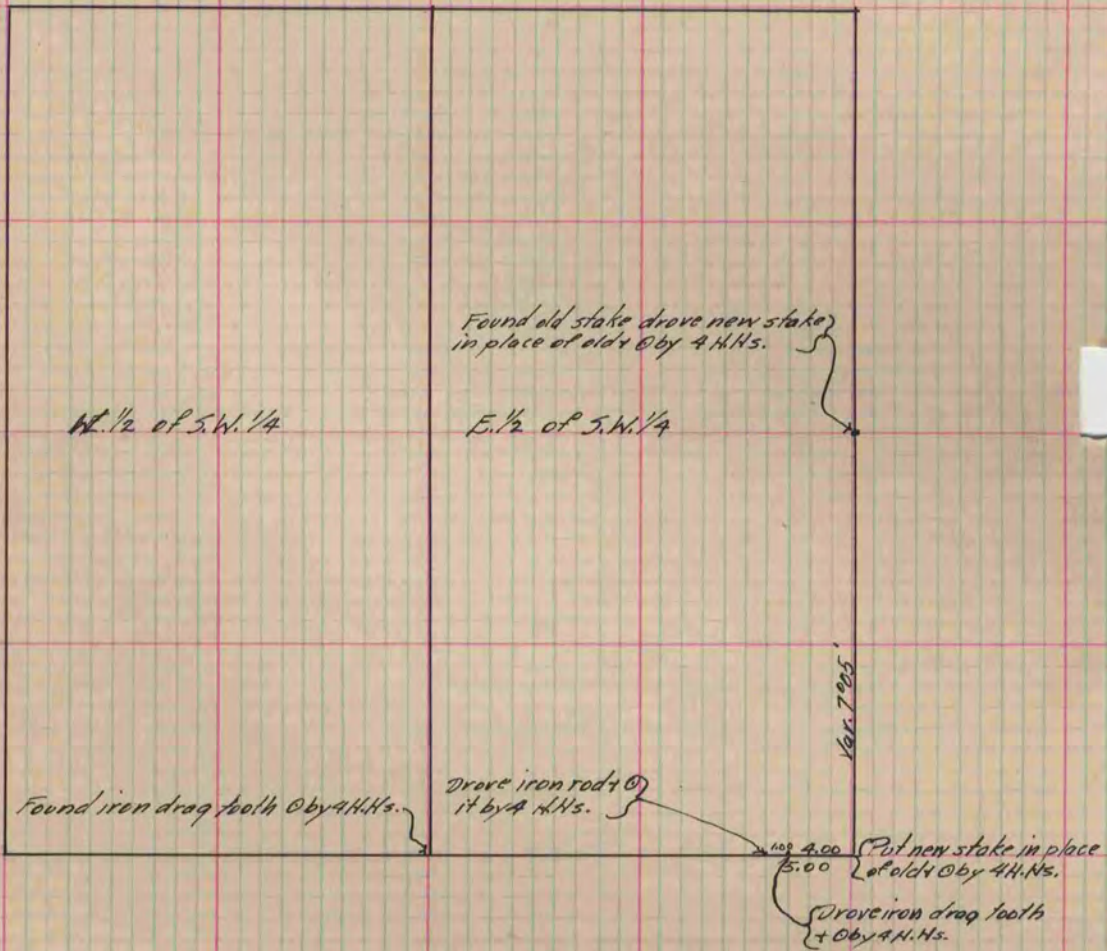 Found old stake drove new stake
in place of old + ⊙ by 4 H.Hs.
W. 1/2 of S.W. 1/4
E. 1/2 of S.W. 1/4
Var. 7°05'
Found iron drag tooth ⊙ by 4 H.Hs.
Drove iron rod + ⊙
it by 4 H.Hs.
1.00 4.00
5.00
Put new stake in place
of old + ⊙ by 4 H.Hs.
Drove iron drag tooth
+ ⊙ by 4 H.Hs.